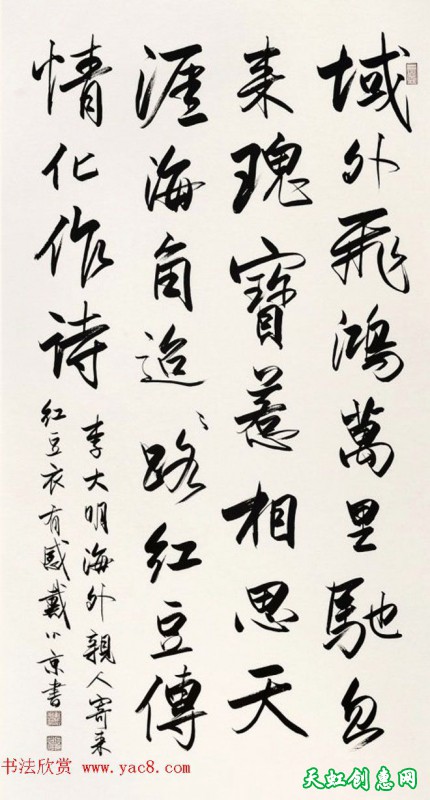 域外飛鴻萬里馳忽
来瑰寶惹相思天
涯海角迢〻路红豆傳
情化作诗
李大明海外親人寄来
红豆衣有感戴小京書
书法欣赏 www.yac8.com
天虹创惠网